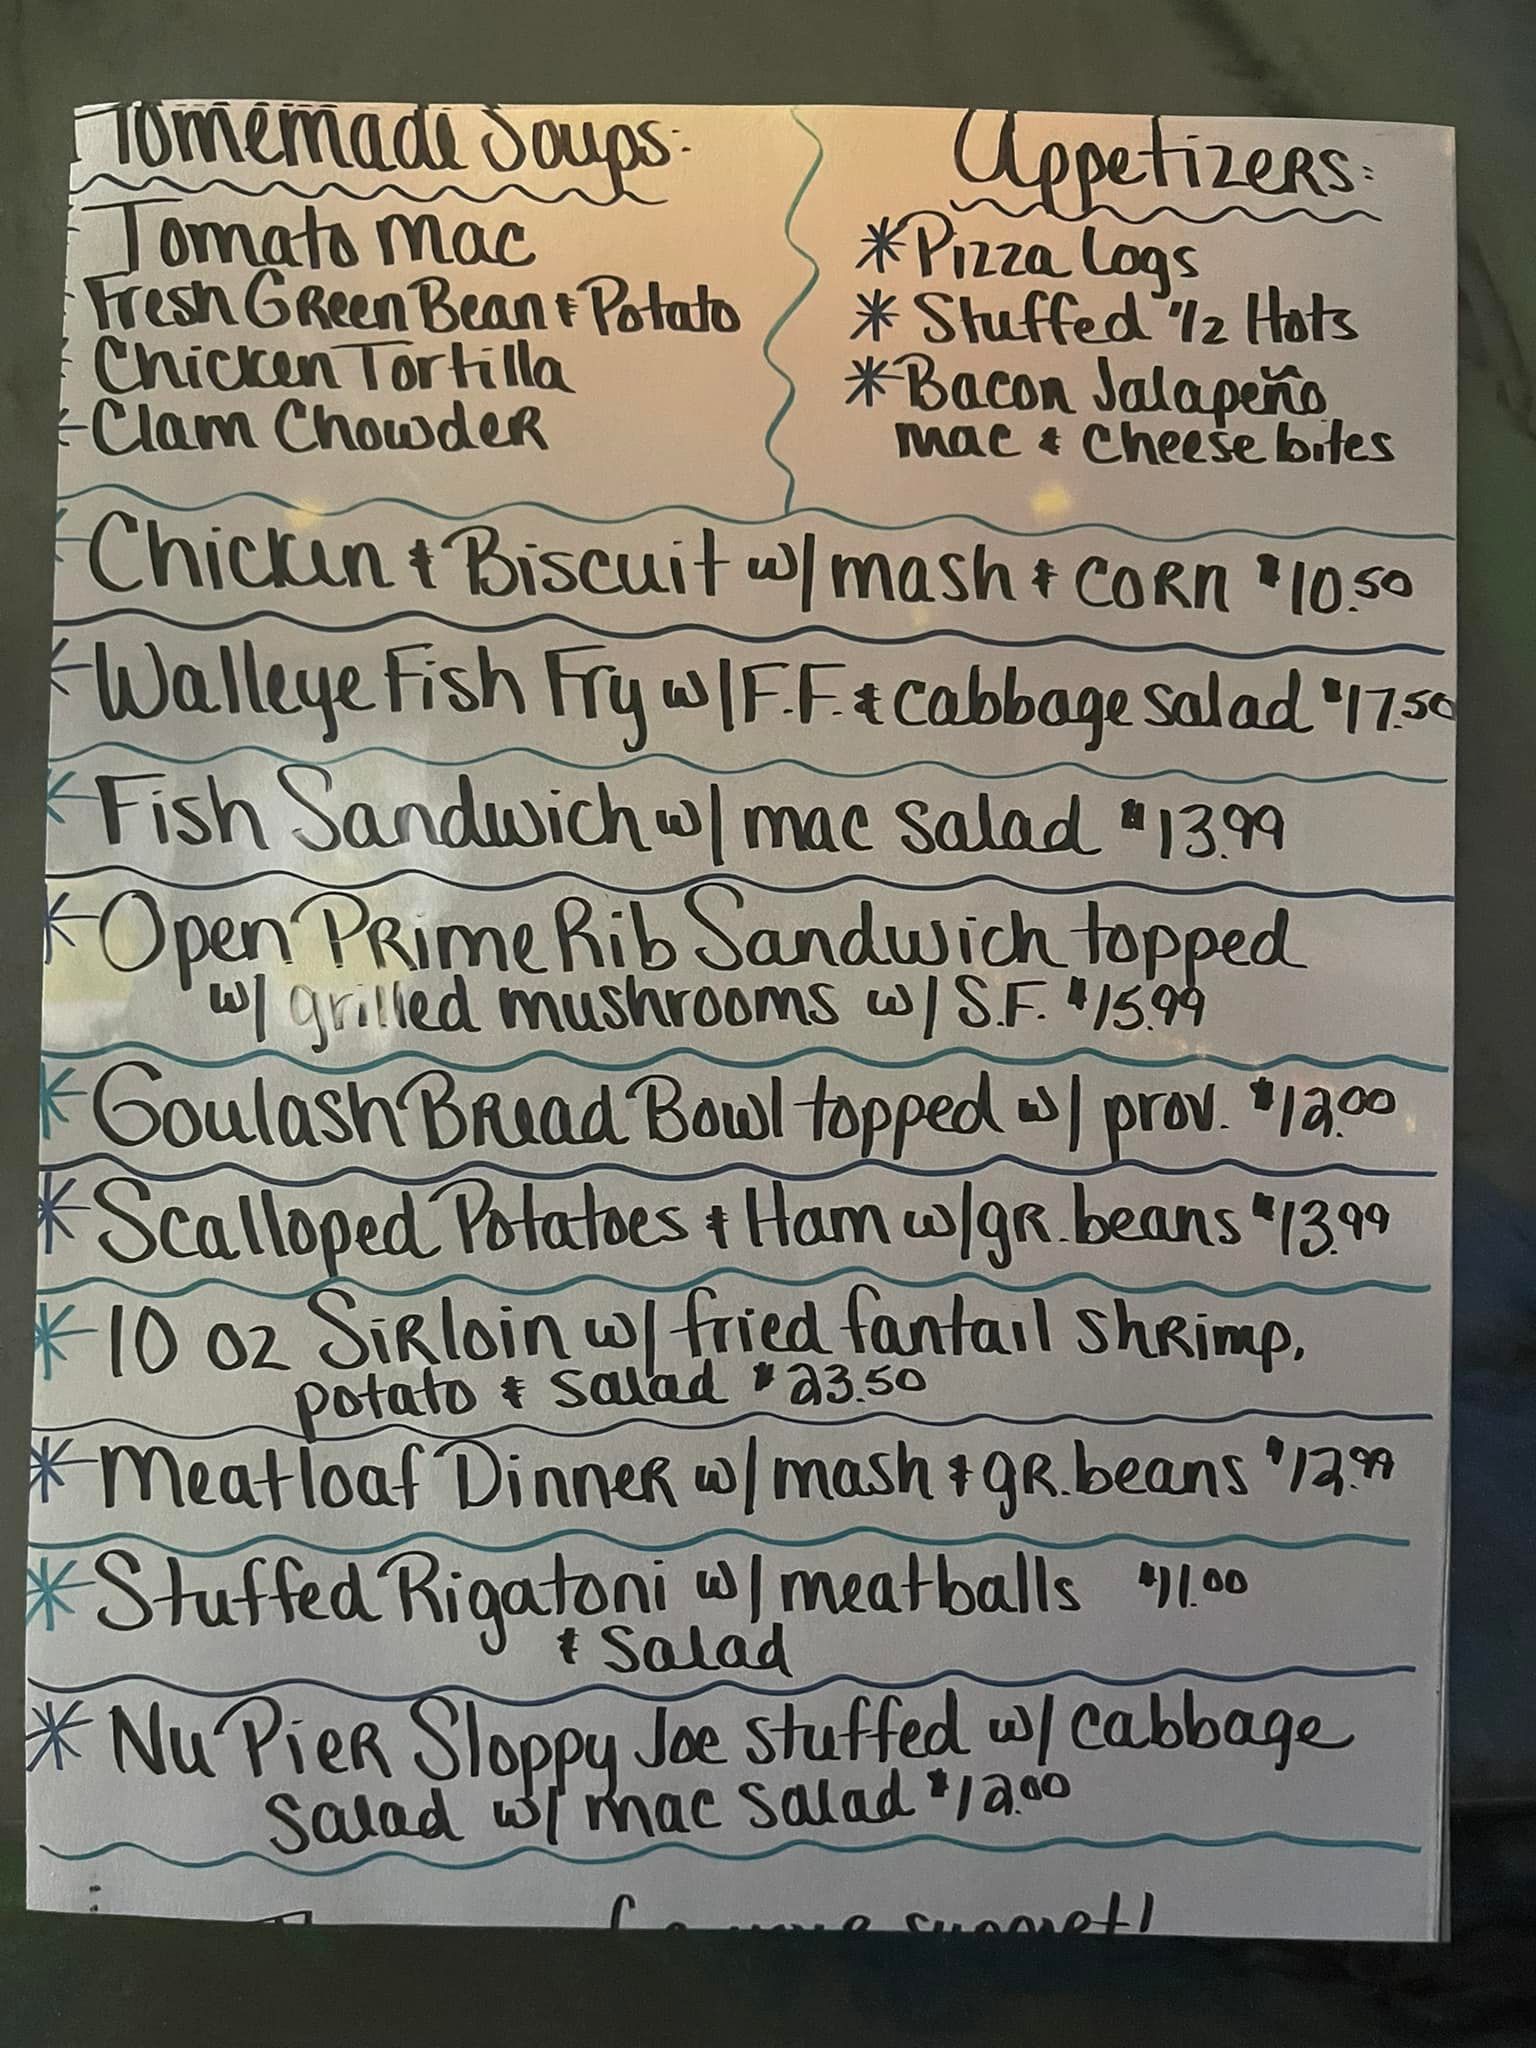 Homemade Soups:
Tomato Mac
Fresh Green Bean & Potato
Chicken Tortilla
Clam Chowder
Appetizers:
*Pizza Logs
*Stuffed 1/2 Hots
*Bacon Jalapeño
Mac & Cheese bites
*Chicken & Biscuit w/ mash & corn $10.50
*Walleye Fish Fry w/ F.F. & cabbage salad $17.50
*Fish Sandwich w/ mac salad $13.99
*Open Prime Rib Sandwich topped
w/ grilled mushrooms w/ S.F. $15.99
*Goulash Bread Bowl topped w/ prov. $12.00
*Scalloped Potatoes & Ham w/ gr. beans $13.99
*10 oz Sirloin w/ fried fantail shrimp,
potato & salad $23.50
*Meatloaf Dinner w/ mash & gr. beans $12.99
*Stuffed Rigatoni w/ meatballs $11.00
& salad
*Nu Pier Sloppy Joe stuffed w/ cabbage
salad w/ mac salad $12.00
support!